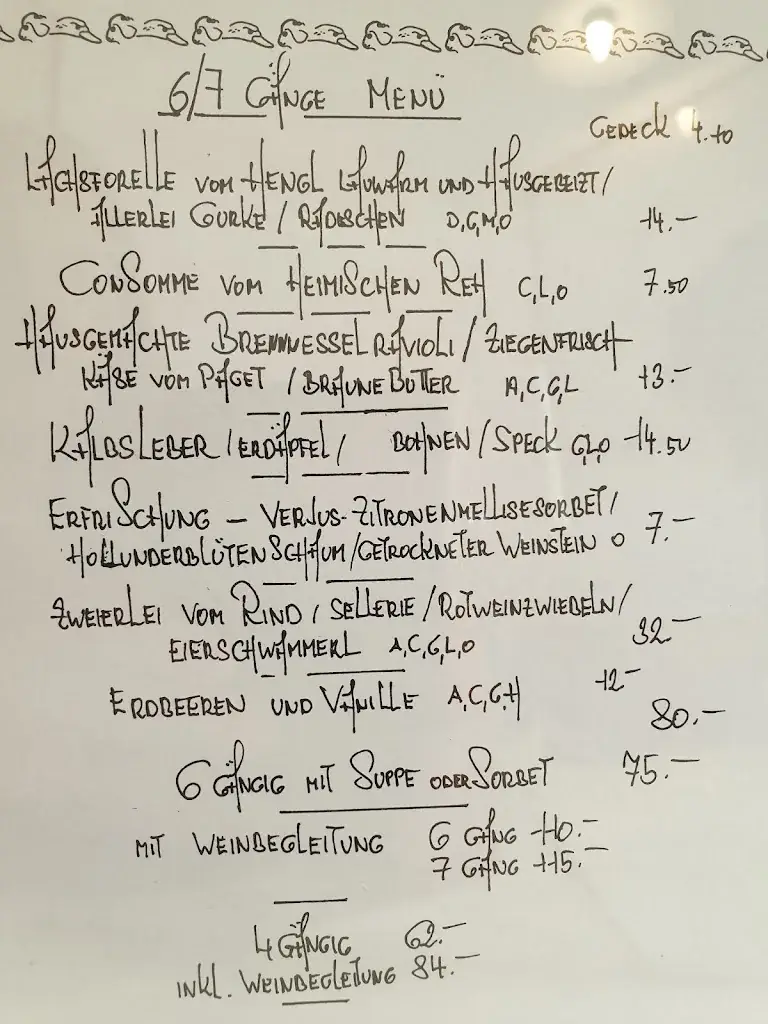 6/7 GÄNGE MENÜ
GEDECK 4.10
LACHSFORELLE VOM HENGL LAUWARM UND HAUSGEBEIZT/
ALLERLEI GURKE / RADIESCHEN D,G,M,O 14.—
CONSOMME VOM HEIMISCHEN REH C,L,O 7.50
HAUSGEMACHTE BRENNNESSELRAVIOLI / ZIEGENFRISCH
KÄSE VOM PAGET / BRAUNE BUTTER A,C,G,L 13.—
KALBSLEBER / ERDÄPFEL / BOHNEN / SPECK G,L,O 14.50
ERFRISCHUNG — VERJUS-ZITRONENMELLISESORBET /
HOLLUNDERBLÜTENSCHAUM / GETROCKNETER WEINSTEIN O 7.—
ZWEIERLEI VOM RIND / SELLERIE / ROTWEINZWIEBELN /
EIERSCHWAMMERL A,C,G,L,O 32—
ERDBEEREN UND VANILLE A,C,G,H 12—
80.—
6 GÄNGIG MIT SUPPE ODER SORBET 75.—
MIT WEINBEGLEITUNG 6 GANG 110.—
7 GANG 115.—
4 GÄNGIG 62.—
INKL. WEINBEGLEITUNG 84.—